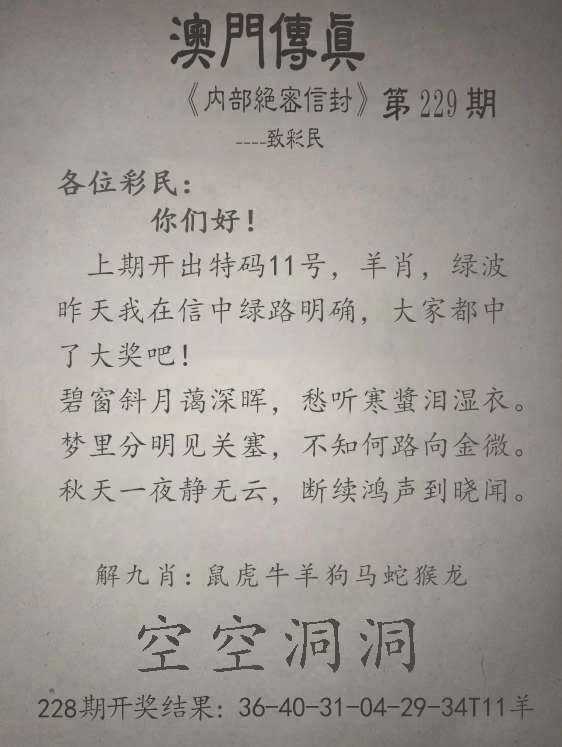 澳門傳真
《内部絕密信封》第229期
----致彩民
各位彩民：
你们好！
上期开出特码11号，羊肖，绿波
昨天我在信中绿路明确，大家都中
了大奖吧！
碧窗斜月蔼深晖，愁听寒螿泪湿衣。
梦里分明见关塞，不知何路向金微。
秋天一夜静无云，断续鸿声到晓闻。
解九肖：鼠虎牛羊狗马蛇猴龙
空空洞洞
228期开奖结果：36-40-31-04-29-34T11羊